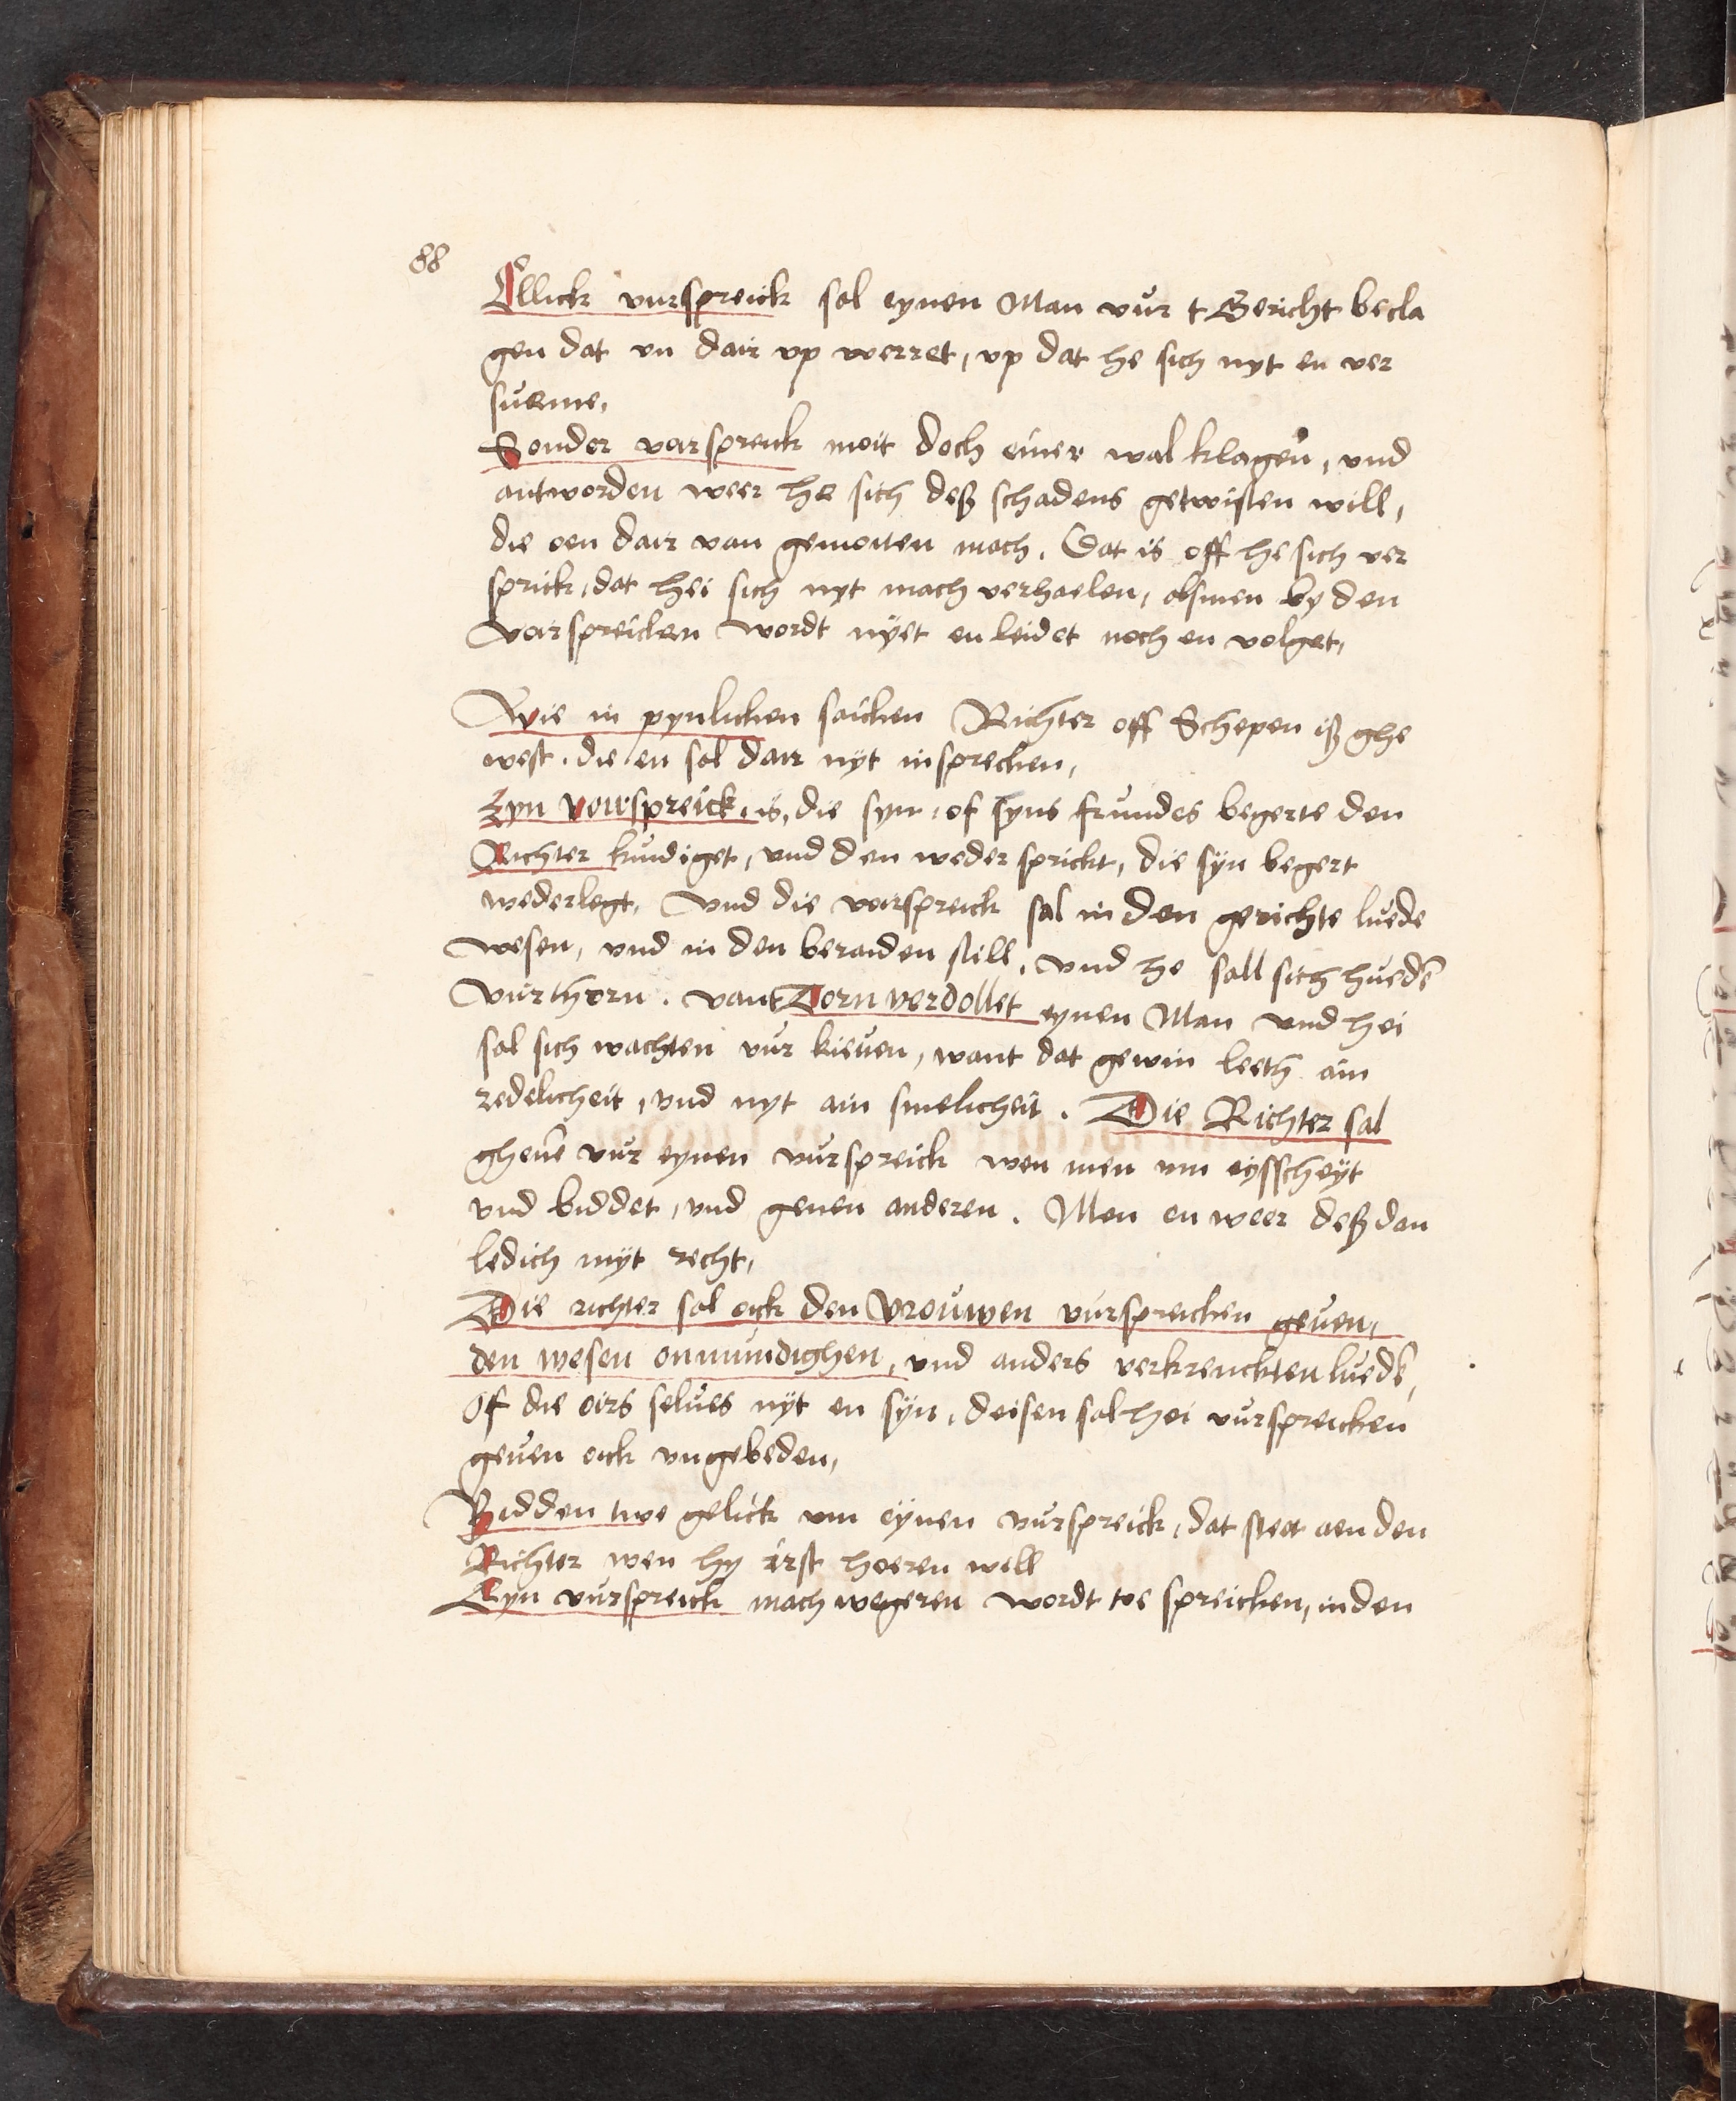 88
Ellick vurspreick sal eynen Man vur t Gericht becla
gen dat vn dair vp werret, vp dat he sich nyt en ver
sueme,
Sonder vorspreick moit doch einer wal klagen, vnd
antworden weer he sich deß schadens getrosten will,
die oen dair van gemoiten mach. Dat is off he sich ver
sprick, dat hei sich nyt mach verhaelen, alsmen by den
vorspreicken wordt nyet en leidet noch en volget,
Wie in pynlicken saicken Richter off Schepen iß ghe
west. die en sal dair nyt insprecken,
Eyn vorspreick, is, die syn, of syns frundes begerte den
Richter kundiget, vnd den weder sprickt, die syn begert
wederlegt, Vnd die vorspreick sal in den gerichte luede
wesen, vnd in den beraiden still, vnd he sall sich hueden
vur thorn. vant Torn verdollet eynen Man vnd hei
sal sich wachten vur kieuen, want dat gewin leeth ain
redelicheit, vnd nyt ain snelicheit. Die Richter sal
gheue vur eynen vurspreick wen men vm eysscheyt
vnd biddet, vnd genen anderen. Men en weer deß dan
ledich myt recht,
Die richter sal oick den Vrouwen vurspreicken geuen,
den wesen onmundighen, vnd anders verkrenckten luede,
of die oirs selues nyt en syn, deisen sal hei vurspreicken
geuen oick vngebeden,
Bidden twe gelick vm eynen vurspreick, dat steit aen den
Richter wen hy irst hoeren will
Eyn vurspreick mach wegeren wordt toe spreicken, in den